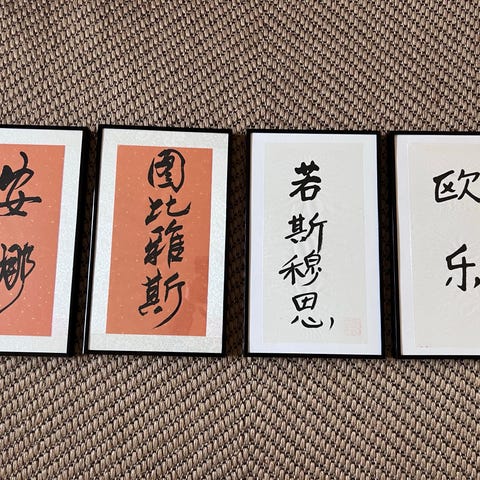 安娜
图比雅斯
若斯穆思
欧乐